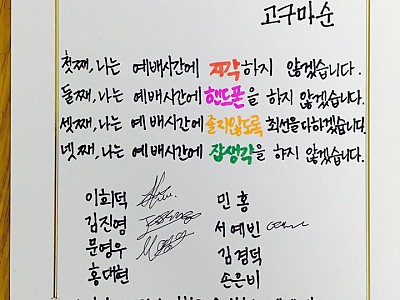 고구마순
첫째, 나는 예배시간에 지각하지 않겠습니다.
둘째, 나는 예배시간에 핸드폰을 하지 않겠습니다.
셋째, 나는 예배시간에 졸지않도록 최선을다하겠습니다.
넷째, 나는 예배시간에 잡생각을 하지 않겠습니다.
이희덕 민홍
김진영 서예빈
문영우 김경덕
홍대현 손은비